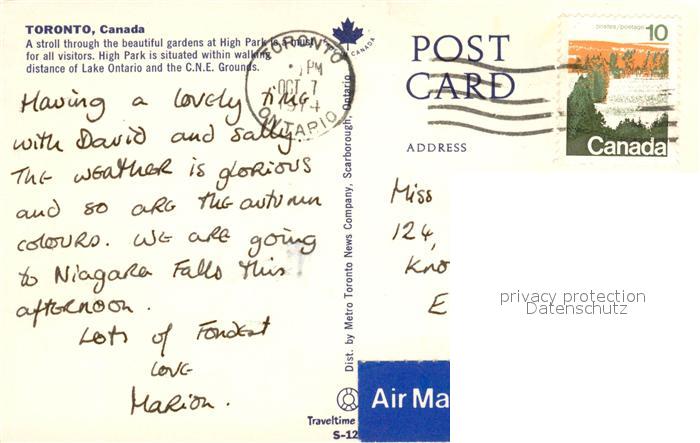 TORONTO, Canada
A stroll through the beautiful gardens at High Park is a must
for all visitors. High Park is situated within walking
distance of Lake Ontario and the C.N.E. Grounds.
Having a lovely time
with David and Sally.
The weather is glorious
and so are the autumn
colours. We are going
to Niagara Falls this
afternoon.
Lots of Fondest
love
Marion.
TORONTO
PM
OCT 7
ONTARIO
CANADA
Dist. by Metro Toronto News Company, Scarborough, Ontario
Traveltime
S-12
POST
CARD
ADDRESS
postes/postage 10
Canada
Miss
124,
Kno
E
privacy protection
Datenschutz
Air Ma